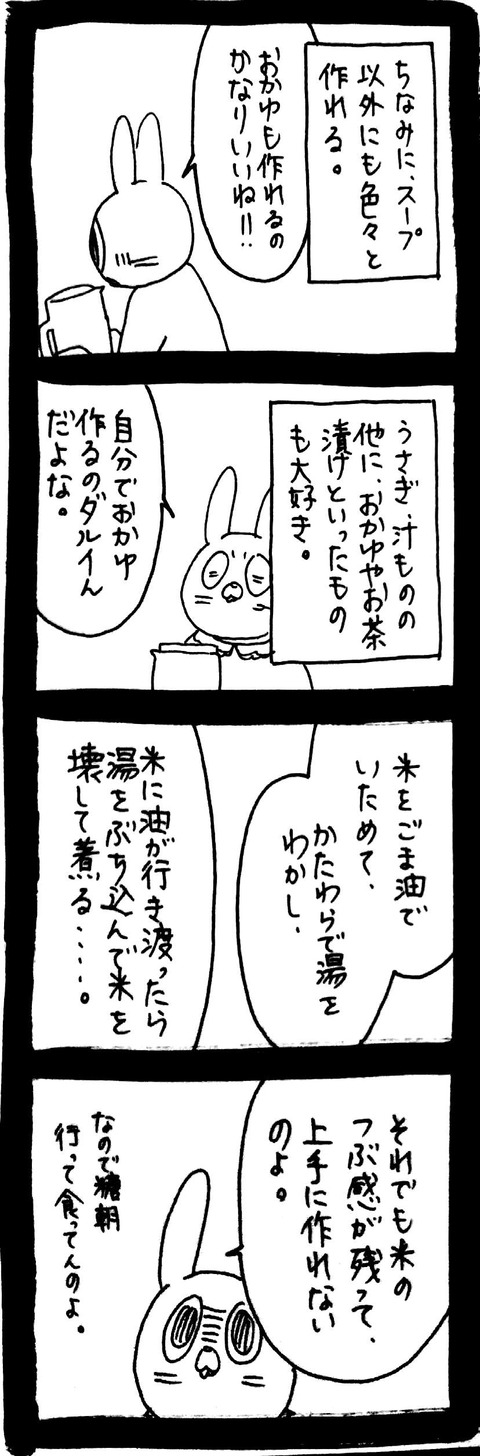 ちなみに、スープ
以外にも色々と
作れる。
おかゆも作れるの
かなりいいね!!
うさぎ、汁ものの
他に、おかゆやお茶
漬けといったもの
も大好き。
自分でおかゆ
作るのダルイん
だよな。
米をごま油で
いためて、
かたわらで湯を
わかし、
米に油が行き渡ったら
湯をぶち込んで米を
壊して煮る……。
それでも米の
つぶ感が残って、
上手に作れない
のよ。
なので糖朝
行って食ってんのよ。